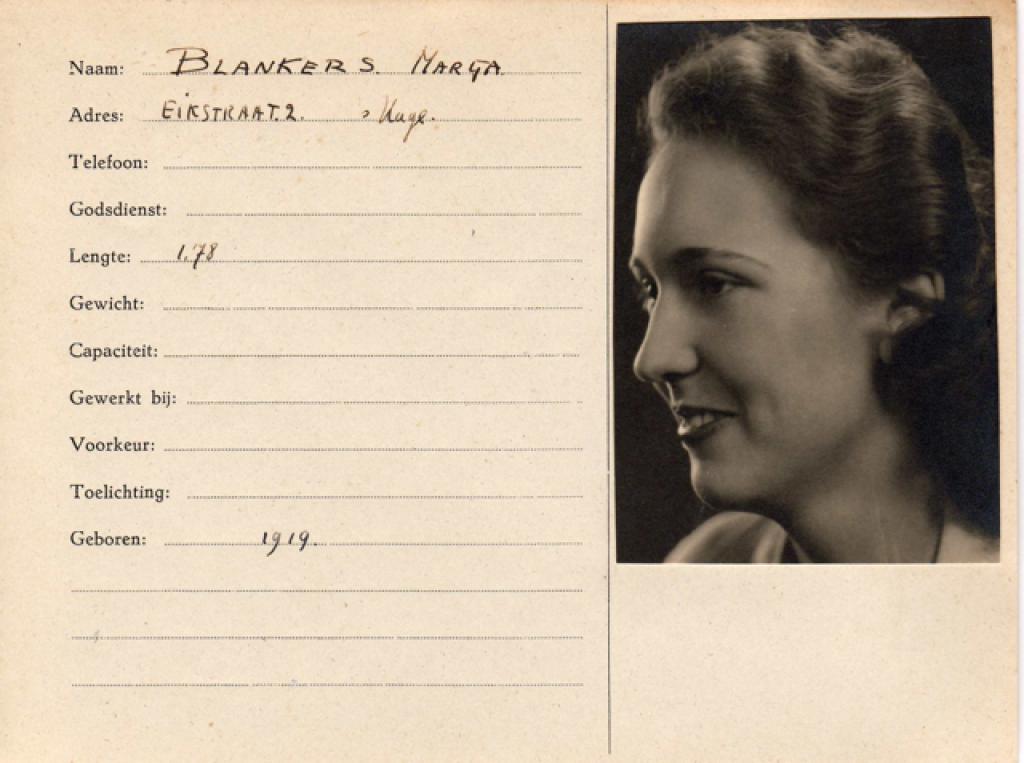 Naam: BLANKERS. MARGA.
Adres: EIKSTRAAT.2. 's Hage.
Telefoon:
Godsdienst:
Lengte: 1.78
Gewicht:
Capaciteit:
Gewerkt bij:
Voorkeur:
Toelichting:
Geboren: 1919.